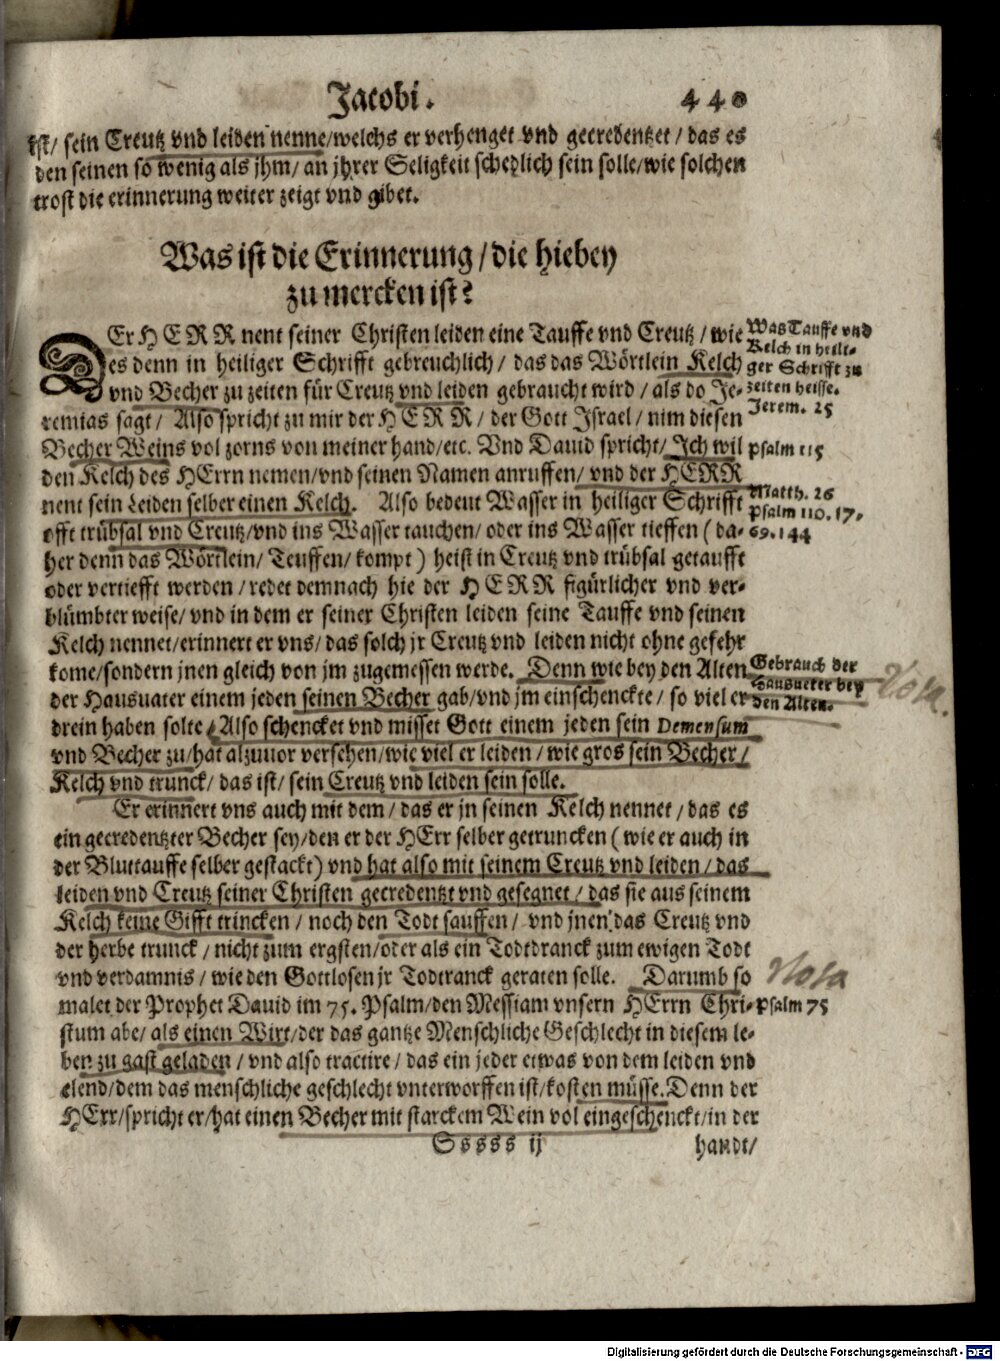 Jacobi. 440
ist/ sein Creutz vnd leiden nenne/welchs er verhenget vnd gecredentzet / das es
den seinen so wenig als jhm/ an jhrer Seligkeit schedlich sein solle/wie solchen
trost die erinnerung weiter zeigt vnd gibet.
Was ist die Erinnerung / die hiebey
zu mercken ist?
DEr HERR nent seiner Christen leiden eine Tauffe vnd Creutz / wie
es denn in heiliger Schrifft gebreuchlich / das das Wörtlein Kelch
vnd Becher zu zeiten für Creutz vnd leiden gebraucht wird / als do Je-
remias sagt / Also spricht zu mir der HERR / der Gott Israel / nim diesen
Becher Weins vol zorns von meiner hand/etc. Vnd Dauid spricht/ Ich wil
den Kelch des HErrn nemen/vnd seinen Namen anruffen/ vnd der HERR
nent sein Leiden selber einen Kelch. Also bedeut Wasser in heiliger Schrifft
offt trübsal vnd Creutz/vnd ins Wasser tauchen/ oder ins Wasser tieffen ( da-
her denn das Wörtlein/ Teuffen/ kompt ) heist in Creutz vnd trübsal getaufft
oder vertiefft werden / redet demnach hie der HERR figürlicher vnd ver-
blümbter weise/ vnd in dem er seiner Christen leiden seine Tauffe vnd seinen
Kelch nennet/erinnert er vns/ das solch jr Creutz vnd leiden nicht ohne gefehr
kome/sondern jnen gleich von jm zugemessen werde. Denn wie bey den Alten
der Hausuater einem jeden seinen Becher gab/vnd jm einschenckte/ so viel er
drein haben solte / Also schencket vnd misset Gott einem jeden sein Demensum
vnd Becher zu/ hat alzuuor versehen/wie viel er leiden / wie gros sein Becher /
Kelch vnd trunck/ das ist/ sein Creutz vnd leiden sein solle.
Er erinnert vns auch mit dem / das er jn seinen Kelch nennet / das es
ein gecredentzter Becher sey/den er der HErr selber getruncken ( wie er auch in
der Bluttauffe selber gestackt) vnd hat also mit seinem Creutz vnd leiden / das
leiden vnd Creutz seiner Christen gecredentzt vnd gesegnet / das sie aus seinem
Kelch keine Gifft trincken / noch den Todt sauffen / vnd jnen das Creutz vnd
der herbe trunck / nicht zum ergsten/oder als ein Todtdranck zum ewigen Todt
vnd verdamnis / wie den Gottlosen jr Todtranck geraten solle. Darumb so
malet der Prophet Dauid im 75. Psalm/den Messiam vnsern HErrn Chri-
stum abe/ als einen Wirt/der das gantze Menschliche Geschlecht in diesem le-
ben zu gast geladen / vnd also tractire / das ein jeder etwas von dem leiden vnd
elend/dem das menschliche geschlecht vnterworffen ist/kosten müsse. Denn der
HErr/spricht er/hat einen Becher mit starckem Wein vol eingeschenckt/in der
Sssss ij handt/
Was Tauffe vnd
Kelch in heili-
ger Schrifft zu
zeiten heisse.
Jerem. 25
Psalm 115
Matth. 26
Psalm 110. 17.
69. 144
Gebrauch der
Hausueter bey
den Alten.
Nota.
Nota
Psalm 75
Digitalisierung gefördert durch die Deutsche Forschungsgemeinschaft - DFG